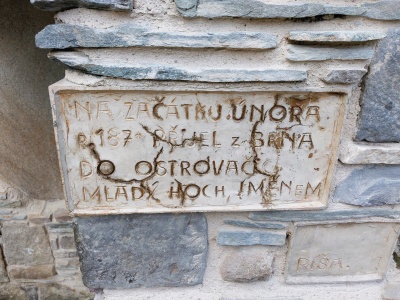 NA ZAČÁTKU ÚNORA
R. 187 PŘIJEL z BRNA
DO OSTROVAČ
MLADÝ HOCH, JMÉNEM
ŘÍŠA.